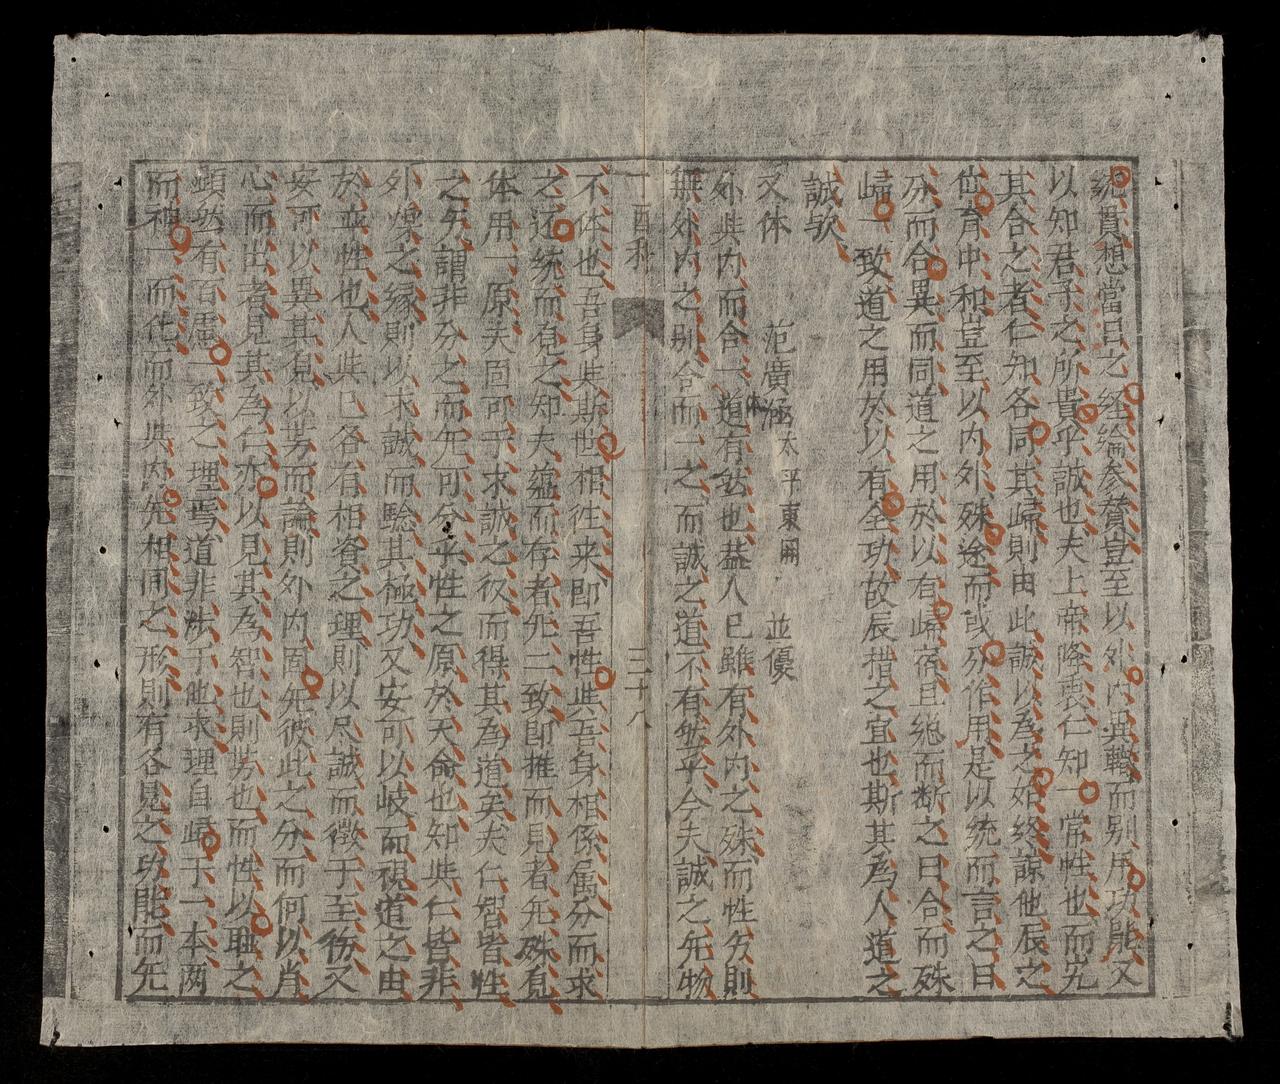 統貫想當日之経綸参賛豈至以外内異轉而别用功能又
以知君子之所貴乎誠也夫上帝降衷仁知一常性也而究
其合之者仁知各同其歸則由此誠以為之始終諒他辰之
位育中和豈至以内外殊途而或分作用是以統而言之曰
分而合異而同道之用於以有歸宿且絶而断之曰合而殊
歸一致道之用於以有全功故辰措之宜也斯其為人道之
誠欤
又体 范廣涵 太平東関 並優
外與内而合一体道有然也蓋人已雖有外内之殊而性分則
無外内之别合而一之而誠之道不有然乎今夫誠之旡物
酉科 三十八
不体也吾身與斯世相徃来即吾性與吾身相係属分而求
之还統而有之知夫蘊而存者旡二致即推而見者旡殊有
体用一原夫固可乎求誠之後而得其為道矣夫仁智皆性
之分謂非分之而旡可分乎性之原於天命也知與仁皆非
外煥之縁則以求誠而驗其極功又安可以岐而視道之由
於並性也人與已各有相資之理則以尽誠而徵于至彷又
安可以異其有以労而論則外内固旡彼此之分而何以肖
心而出者見其為仁亦以見其為智也則労也而性以耻之
頓然有百慮一致之理焉道非法于他求理自歸于一本兩
而神一而化而外與内旡相同之形則有各見之功能而旡